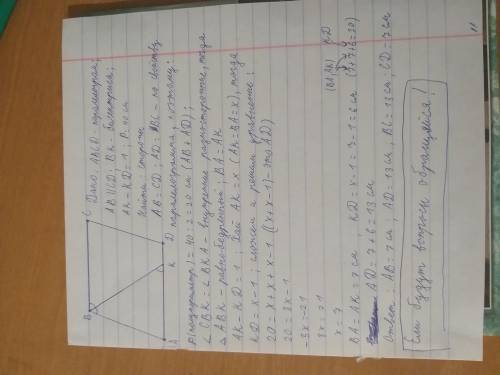 B C A K D
Дано: ABCD - параллграм;
AB||CD; BK - биссектриса;
AK - KD = 1; P = 40 см
Найти: стороны
AB = CD; AD = BC - по свойству
параллограмма, поэтому:
P(полупериметр) = 40 : 2 = 20 см (AB + AD);
∠CBK = ∠BKA - внутренние разносторонние, тогда
△ABK - равнобедренный; BA = AK
AK - KD = 1; Пусть AK = x (AK = BA = x), тогда
KD = x - 1; сложем и решим уравнение:
20 = x + x + x - 1 ((x + x - 1) - это AD)
20 = 3x - 1
-3x = -21
3x = 21
x = 7
(BA, AK) KD
BA = AK = 7 см; KD = x - 1 = 7 - 1 = 6 см (7 + 7 + 6 = 20)
AD = 7 + 6 = 13 см
Ответ: AB = 7 см; AD = 13 см; BC = 13 см; CD = 7 см
Если будут вопросы обращайся!